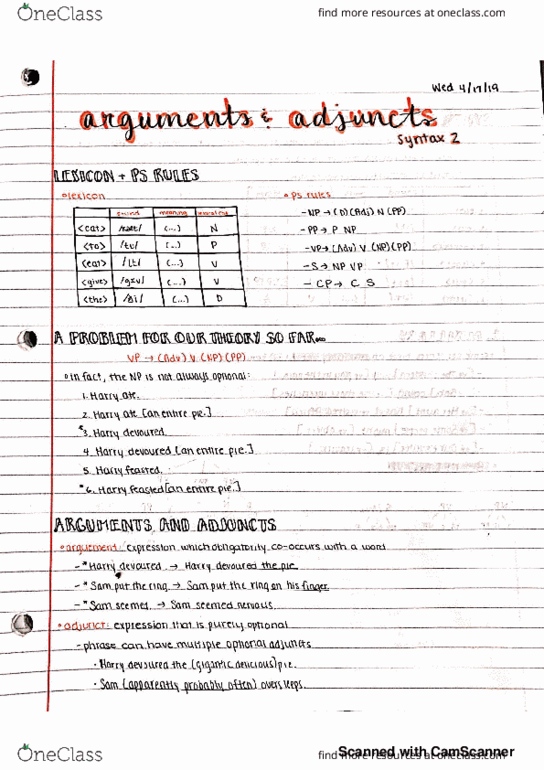 OneClass
find more resources at oneclass.com
Wed 4/17/19
arguments & adjuncts
Syntax 2
LEXICON + PS RULES
• lexicon
• PS rules
sound meaning
<cat> (...) N
<to> (...) P
<eat> (...) V
<give> (...) V
<the> (...) D
- NP → (D) (Adj) N (PP)
- PP → P NP
- VP → (Adv) V (NP) (PP)
- S → NP VP
- CP → C S
A PROBLEM FOR OUR THEORY SO FAR...
VP → (Adv) V (NP) (PP)
• in fact, the NP is not always optional:
1. Harry ate.
2. Harry ate [an entire pie.]
*3. Harry devoured.
4. Harry devoured [an entire pie.]
5. Harry feasted.
*6. Harry feasted [an entire pie.]
ARGUMENTS AND ADJUNCTS
• arguement: expression which obligatorily co-occurs with a word
- *Harry devoured → Harry devoured the pie.
- *Sam put the ring. → Sam put the ring on his finger.
- *Sam seemed. → Sam seemed nervous.
• adjunct: expression that is purely optional
- phrase can have multiple optional adjuncts
• Harry devoured the (gigantic delicious) pie.
• Sam (apparently probably often) oversleeps.
OneClass
find more resources at oneclass.com
Scanned with CamScanner